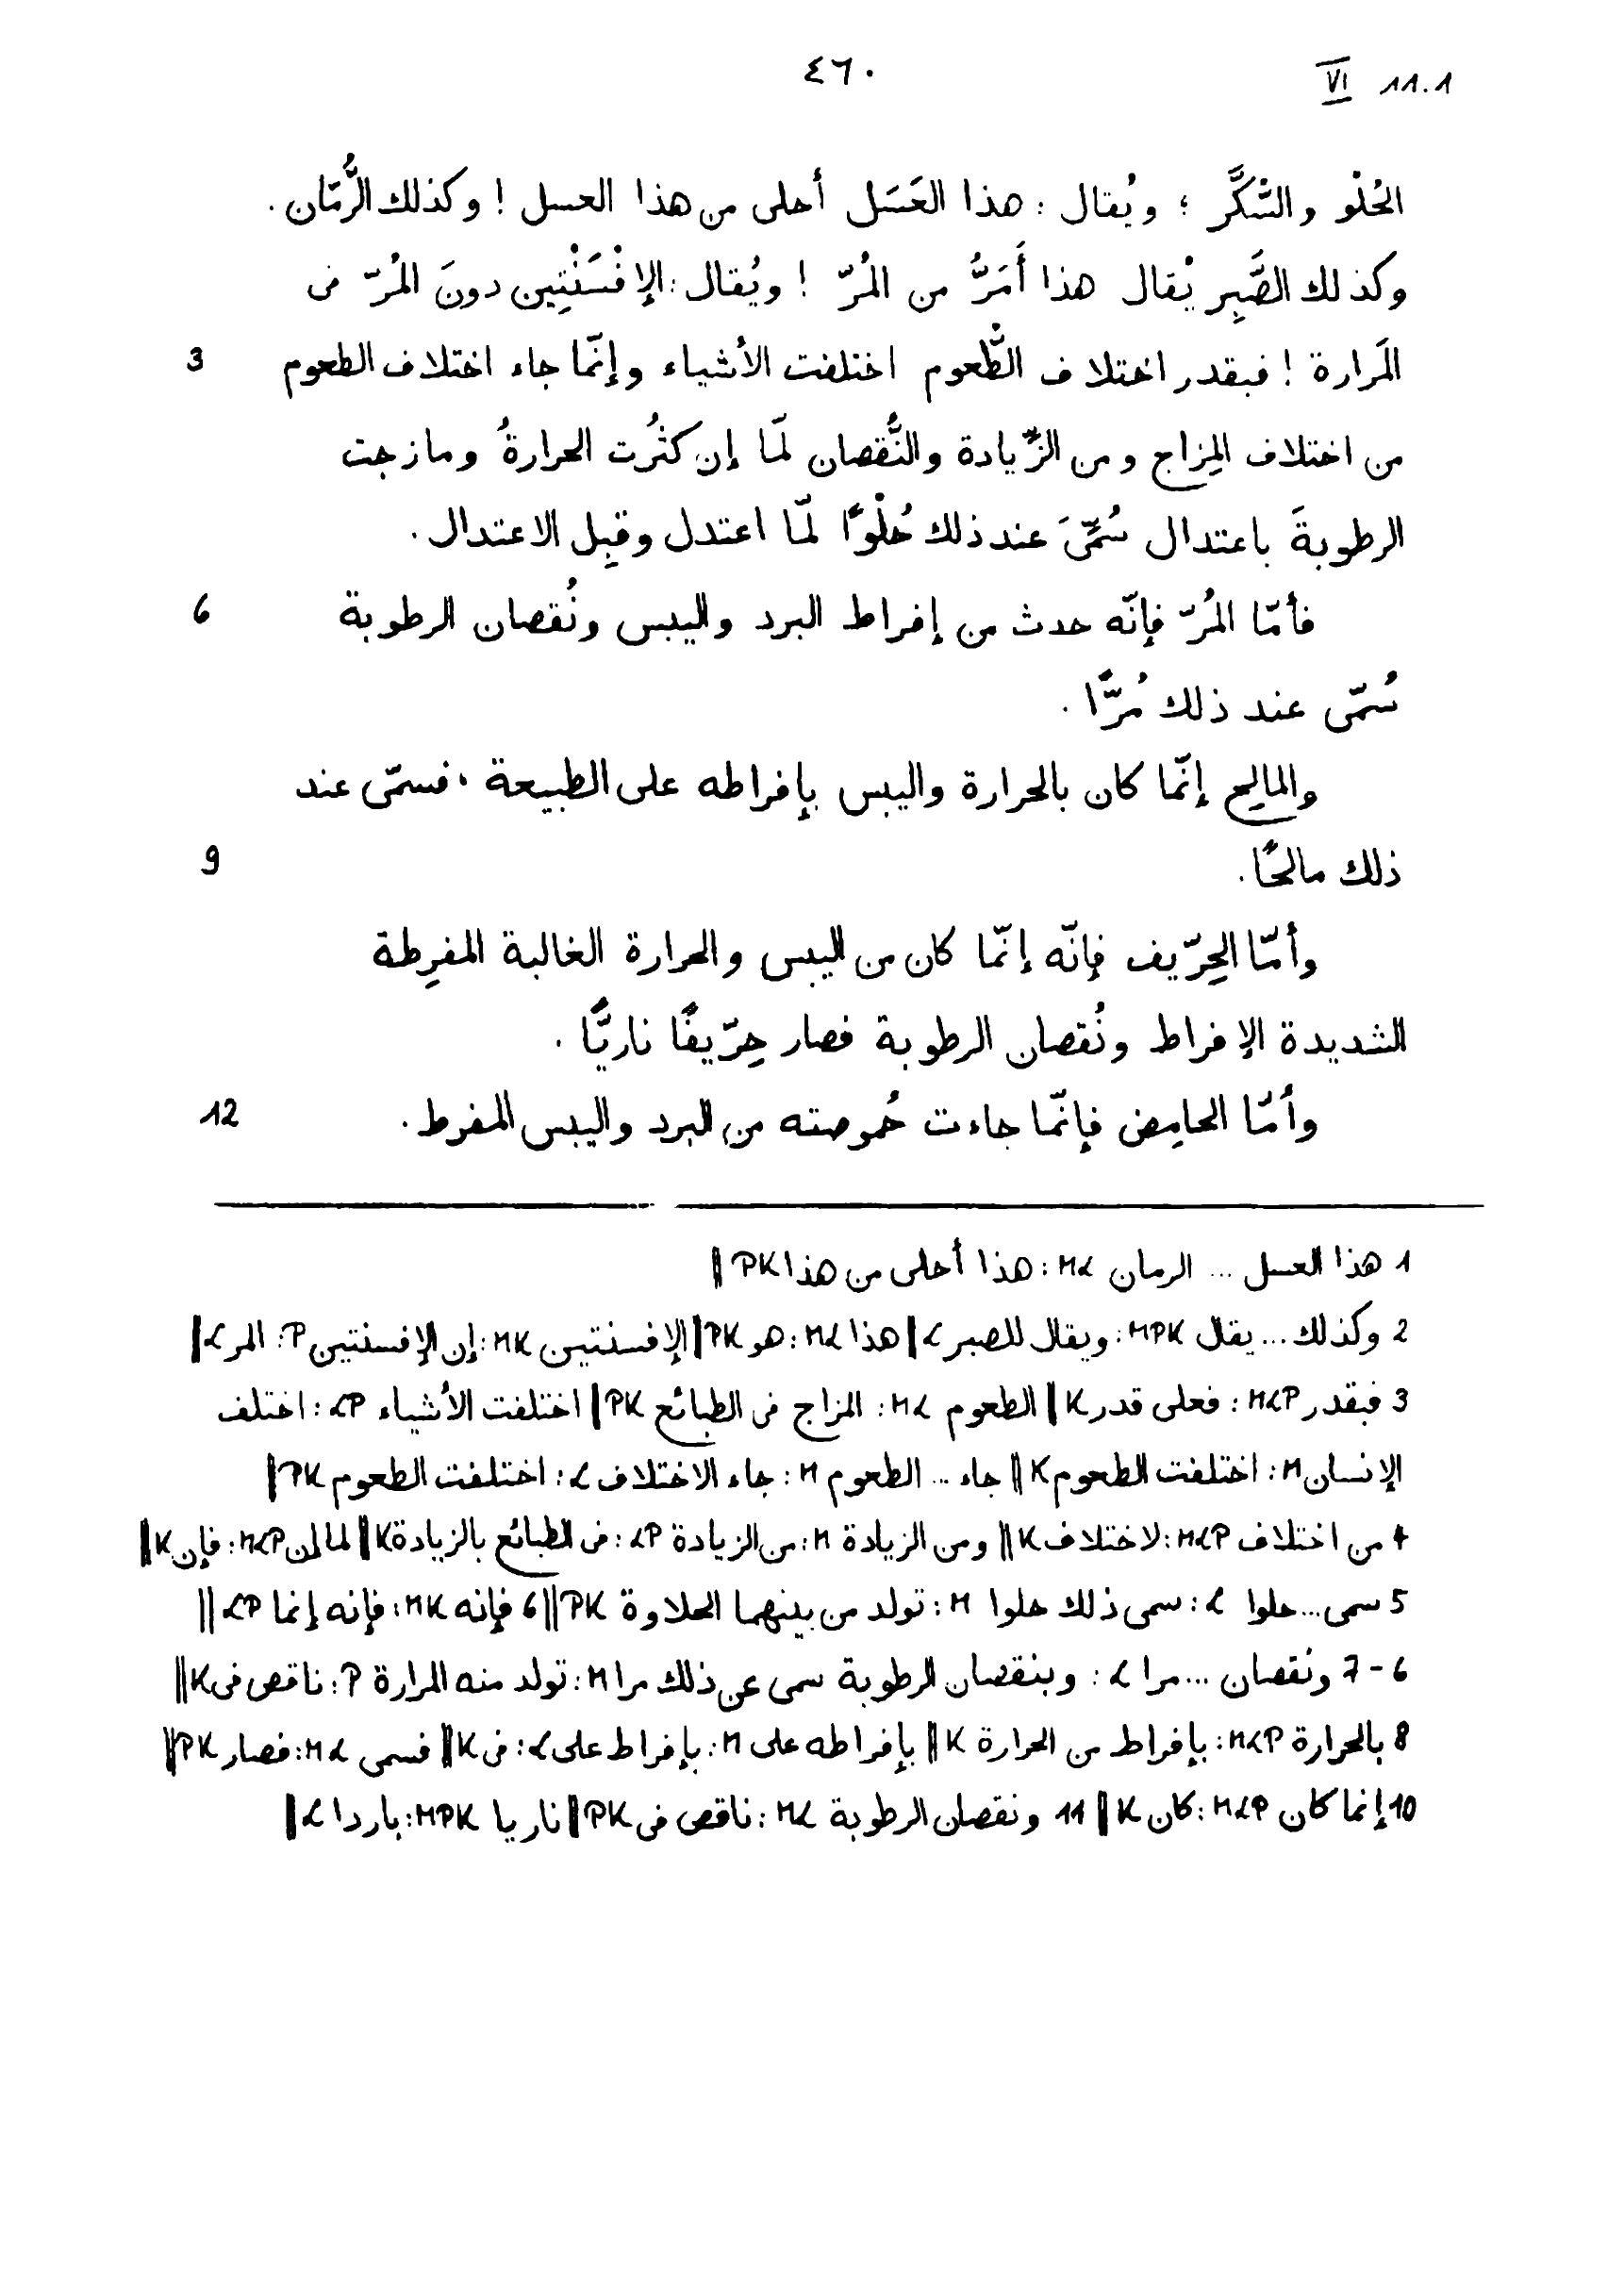 ٤٦٠
VI 11.1
الحُلْو والسُّكَّر ؛ ويُقال : هذا العَسَل أحلى من هذا العسل ! وكذلك الرُّمّان .
وكذلك الصَّبِر يُقال هذا أَمَرُّ من المُرّ ! ويُقال : الإفْسَنْتِين دونَ المُرّ فى
المَرارة ! فبقدر اختلاف الطُّعوم اختلفت الأشياء وإنّما جاء اختلاف الطعوم 3
من اختلاف المِزاج ومن الزِّيادة والنُّقصان لمّا إن كثُرت الحرارةُ ومازجت
الرطوبةَ باعتدال سُمِّىَ عند ذلك حُلْوًا لمّا اعتدل وقبِل الاعتدال .
فأمّا المُرّ فإنّه حدث من إفراط البرد واليبس ونُقصان الرطوبة 6
سُمّى عند ذلك مُرًّا .
والمالِح إنّما كان بالحرارة واليبس بإفراطه على الطبيعة ، فسمّى عند
ذلك مالحًا . 9
وأمّا الحِرّيف فإنّه إنّما كان من اليبس والحرارة الغالبة المفرِطة
الشديدة الإفراط ونُقصان الرطوبة فصار حِرّيفًا ناريًّا .
وأمّا الحامِض فإنّما جاءت حُموضته من البرد واليبس المفرط . 12
1 هذا العسل ... الرمان ML : هذا أحلى من هذا PK ||
2 وكذلك ... يقال MPK : ويقال للصبر L || هذا ML : هو PK || الإفسنتين MK : إن الإفسنتين P : المر L ||
3 فبقدر MLP : فعلى قدر K || الطعوم ML : المزاج فى الطبائع PK || اختلفت الأشياء LP : اختلف
الإنسان M : اختلفت الطعوم K || جاء ... الطعوم M : جاء الاختلاف L : اختلفت الطعوم PK ||
4 من اختلاف MLP : لاختلاف K || ومن الزيادة M : من الزيادة LP : فى الطبائع بالزيادة K || لما إن MLP : فإن K ||
5 سمى ... حلوا L : سمى ذلك حلوا M : تولد من بينهما الحلاوة PK || 6 فإنه MK : فإنه إنما LP ||
6-7 ونقصان ... مرا L : وبنقصان الرطوبة سمى عن ذلك مرا M : تولد منه المرارة P : ناقص فى K ||
8 بالحرارة MLP : بإفراط من الحرارة K || بإفراطه على M : بإفراط على L : فى K || فسمى ML : فصار PK ||
10 إنما كان MLP : كان K || 11 ونقصان الرطوبة ML : ناقص فى PK || ناريا MPK : باردا L ||